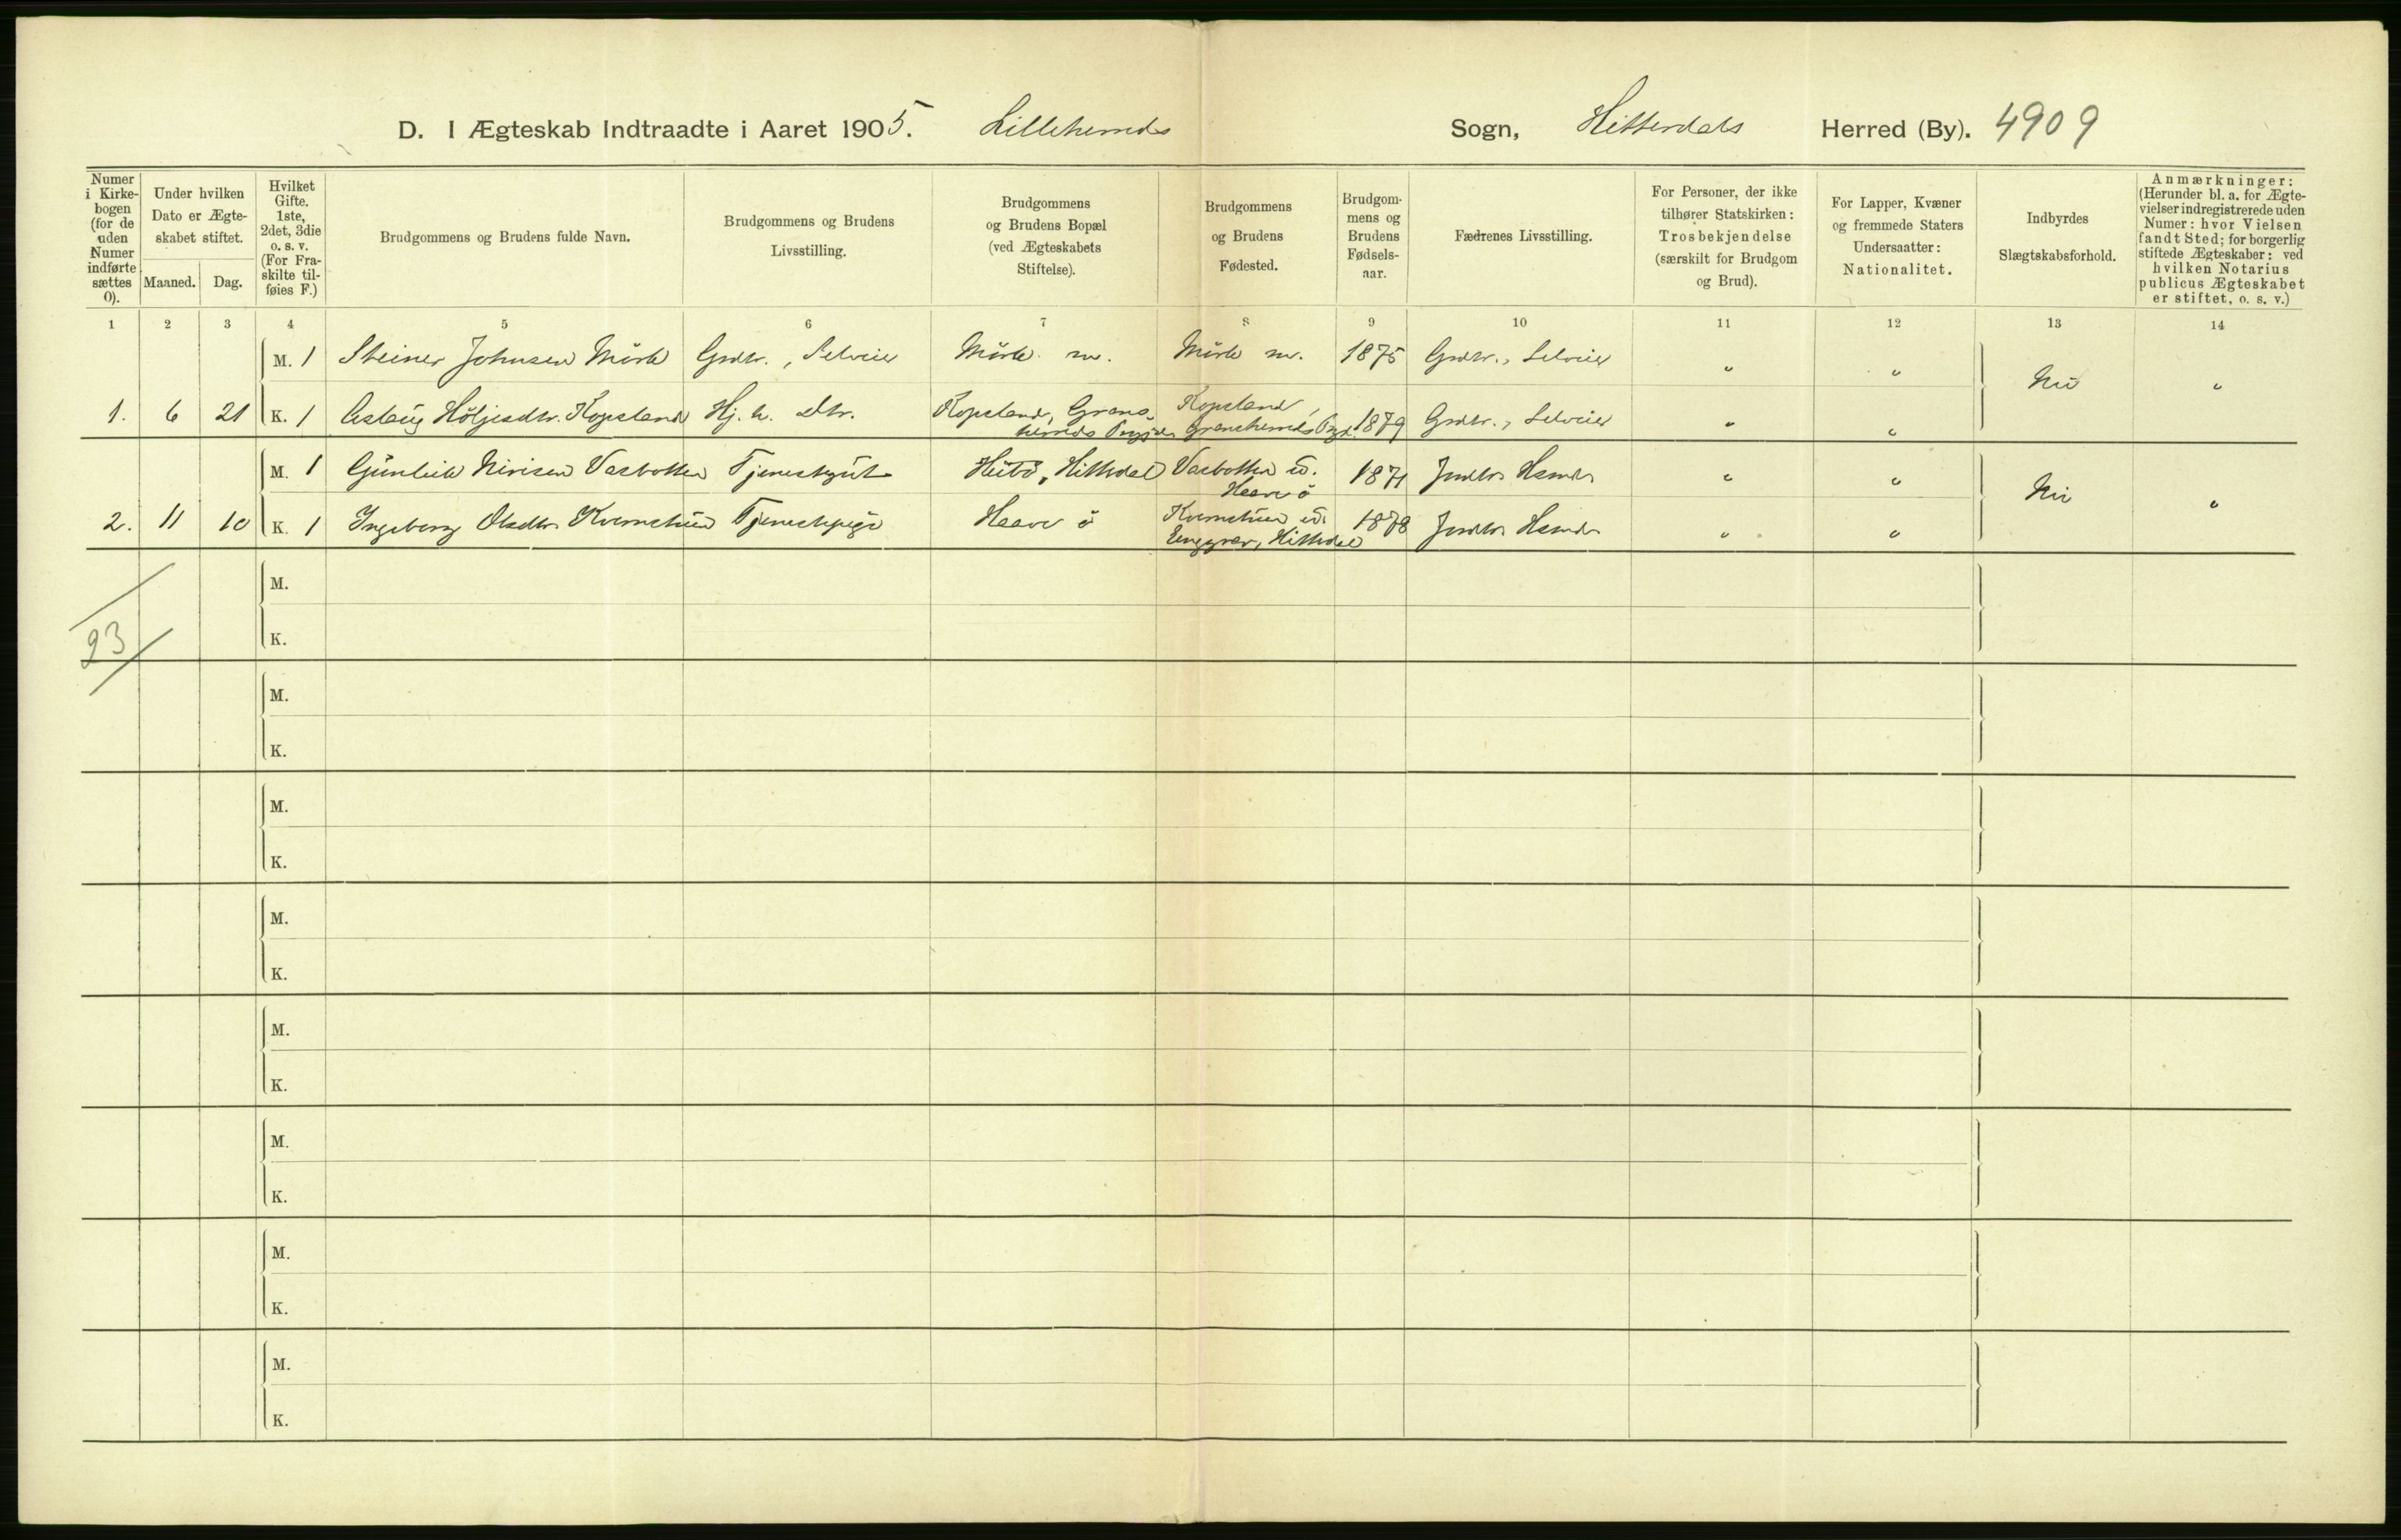 D. I Ægteskab Indtraadte i Aaret 1905. Lilleherreds Sogn, Hitterdals Herred (By). 4909
Numer i Kirkebogen (for de uden Numer indførte sættes 0).
Under hvilken Dato er Ægteskabet stiftet.
Maaned. Dag.
Hvilket Gifte. 1ste, 2det, 3die o. s. v. (For Fraskilte tilføies F.)
Brudgommens og Brudens fulde Navn.
Brudgommens og Brudens Livsstilling.
Brudgommens og Brudens Bopæl (ved Ægteskabets Stiftelse).
Brudgommens og Brudens Fødested.
Brudgommens og Brudens Fødselsaar.
Fædrenes Livsstilling.
For Personer, der ikke tilhører Statskirken: Trosbekjendelse (særskilt for Brudgom og Brud).
For Lapper, Kvæner og fremmede Staters Undersaatter: Nationalitet.
Indbyrdes Slægtskabsforhold.
Anmærkninger: (Herunder bl. a. for Ægtevielser indregistrerede uden Numer: hvor Vielsen fandt Sted; for borgerlig stiftede Ægteskaber: ved hvilken Notarius publicus Ægteskabet er stiftet, o. s. v.)
1 2 3 4 5 6 7 8 9 10 11 12 13 14
M. 1 Steiner Johnsen Mörk Grdbr., Selveier Mörk m. Mörk m. 1875 Grdbr., Selveier " " Nei "
1. 6 21 K. 1 Aslaug Höljesdtr. Kopsland Hj. h. Dtr. Kopsland, Gransherreds Prgjd. Kopsland, Gransherreds Prgd. 1879 Grdbr., Selveier " "
M. 1 Gunleik Nirisen Vasbotten Tjenestgut Heibö, Hitterdal Vasbotten u. Haave ö 1871 Jordbr. Husmd. " " Nei "
2. 11 10 K. 1 Ingeborg Olsdtr. Kvernstuen Tjenestepige Haave ö Kvernstuen u. Enggrav, Hitterdal 1878 Jordbr. Husmd. " "
23
M.
K.
M.
K.
M.
K.
M.
K.
M.
K.
M.
K.
M.
K.
M.
K.